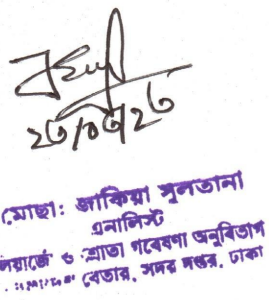 ২৩/০৩/২৩
মোছা: জাকিয়া সুলতানা
এনালিস্ট
ও শ্রোতা গবেষণা অনুবিভাগ
বেতার, সদর দপ্তর, ঢাকা